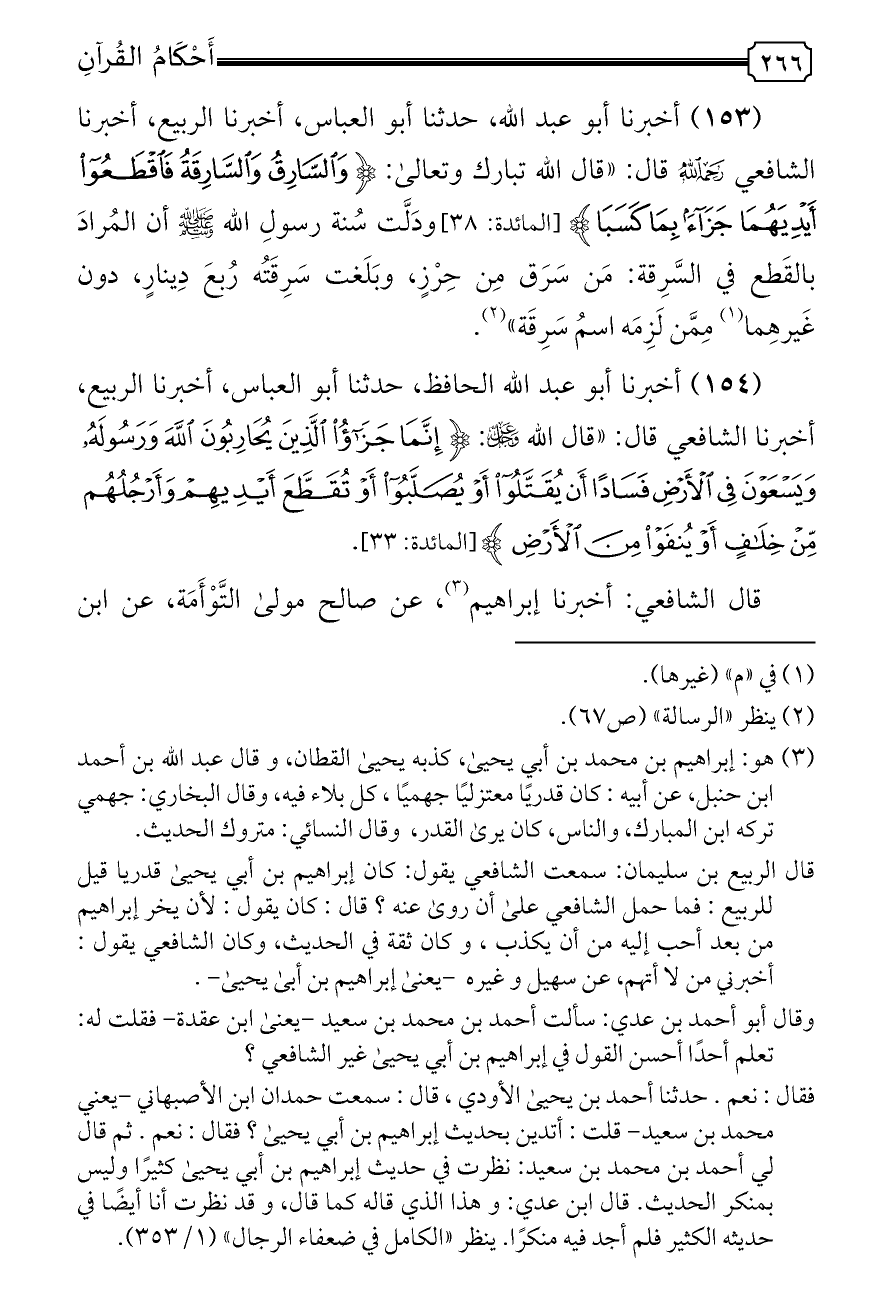 ٢٦٦ أَحْكَامُ القُرآنِ
(١٥٣) أخبرنا أبو عبد الله، حدثنا أبو العباس، أخبرنا الربيع، أخبرنا
الشافعي رَحِمَهُ اللهُ قال: «قال الله تبارك وتعالىٰ: ﴿وَٱلسَّارِقُ وَٱلسَّارِقَةُ فَٱقْطَعُوٓا۟
أَيْدِيَهُمَا جَزَآءًۢ بِمَا كَسَبَا﴾ [المائدة: ٣٨] ودَلَّت سُنة رسولِ الله ﷺ أن المُرادَ
بالقَطع في السَّرِقة: مَن سَرَق مِن حِرْزٍ، وبَلَغت سَرِقَتُه رُبعَ دِينارٍ، دون
غَيرهِما(١) مِمَّن لَزِمَه اسمُ سَرِقَة»(٢).
(١٥٤) أخبرنا أبو عبد الله الحافظ، حدثنا أبو العباس، أخبرنا الربيع،
أخبرنا الشافعي قال: «قال الله عَزَّوَجَلَّ: ﴿إِنَّمَا جَزَٰٓؤُا۟ ٱلَّذِينَ يُحَارِبُونَ ٱللَّهَ وَرَسُولَهُۥ
وَيَسْعَوْنَ فِى ٱلْأَرْضِ فَسَادًا أَن يُقَتَّلُوٓا۟ أَوْ يُصَلَّبُوٓا۟ أَوْ تُقَطَّعَ أَيْدِيهِمْ وَأَرْجُلُهُم
مِّنْ خِلَٰفٍ أَوْ يُنفَوْا۟ مِنَ ٱلْأَرْضِ﴾ [المائدة: ٣٣].
قال الشافعي: أخبرنا إبراهيم(٣)، عن صالح مولىٰ التَّوْأَمَة، عن ابن
(١) في «م» (غيرها).
(٢) ينظر «الرسالة» (ص٦٧).
(٣) هو: إبراهيم بن محمد بن أبي يحيىٰ، كذبه يحيىٰ القطان، و قال عبد الله بن أحمد
ابن حنبل، عن أبيه : كان قدريًا معتزليًا جهميًا ، كل بلاء فيه، وقال البخاري: جهمي
تركه ابن المبارك، والناس، كان يرىٰ القدر، وقال النسائي: متروك الحديث.
قال الربيع بن سليمان: سمعت الشافعي يقول: كان إبراهيم بن أبي يحيىٰ قدريا قيل
للربيع : فما حمل الشافعي علىٰ أن روىٰ عنه ؟ قال : كان يقول : لأن يخر إبراهيم
من بعد أحب إليه من أن يكذب ، و كان ثقة في الحديث، وكان الشافعي يقول :
أخبرني من لا أتهم، عن سهيل و غيره -يعنىٰ إبراهيم بن أبىٰ يحيىٰ- .
وقال أبو أحمد بن عدي: سألت أحمد بن محمد بن سعيد -يعنىٰ ابن عقدة- فقلت له:
تعلم أحدًا أحسن القول في إبراهيم بن أبي يحيىٰ غير الشافعي ؟
فقال : نعم . حدثنا أحمد بن يحيىٰ الأودي ، قال : سمعت حمدان ابن الأصبهاني -يعني
محمد بن سعيد- قلت : أتدين بحديث إبراهيم بن أبي يحيىٰ ؟ فقال : نعم . ثم قال
لي أحمد بن محمد بن سعيد: نظرت في حديث إبراهيم بن أبي يحيىٰ كثيرًا وليس
بمنكر الحديث. قال ابن عدي: و هذا الذي قاله كما قال، و قد نظرت أنا أيضًا في
حديثه الكثير فلم أجد فيه منكرًا. ينظر «الكامل في ضعفاء الرجال» (١/ ٣٥٣).